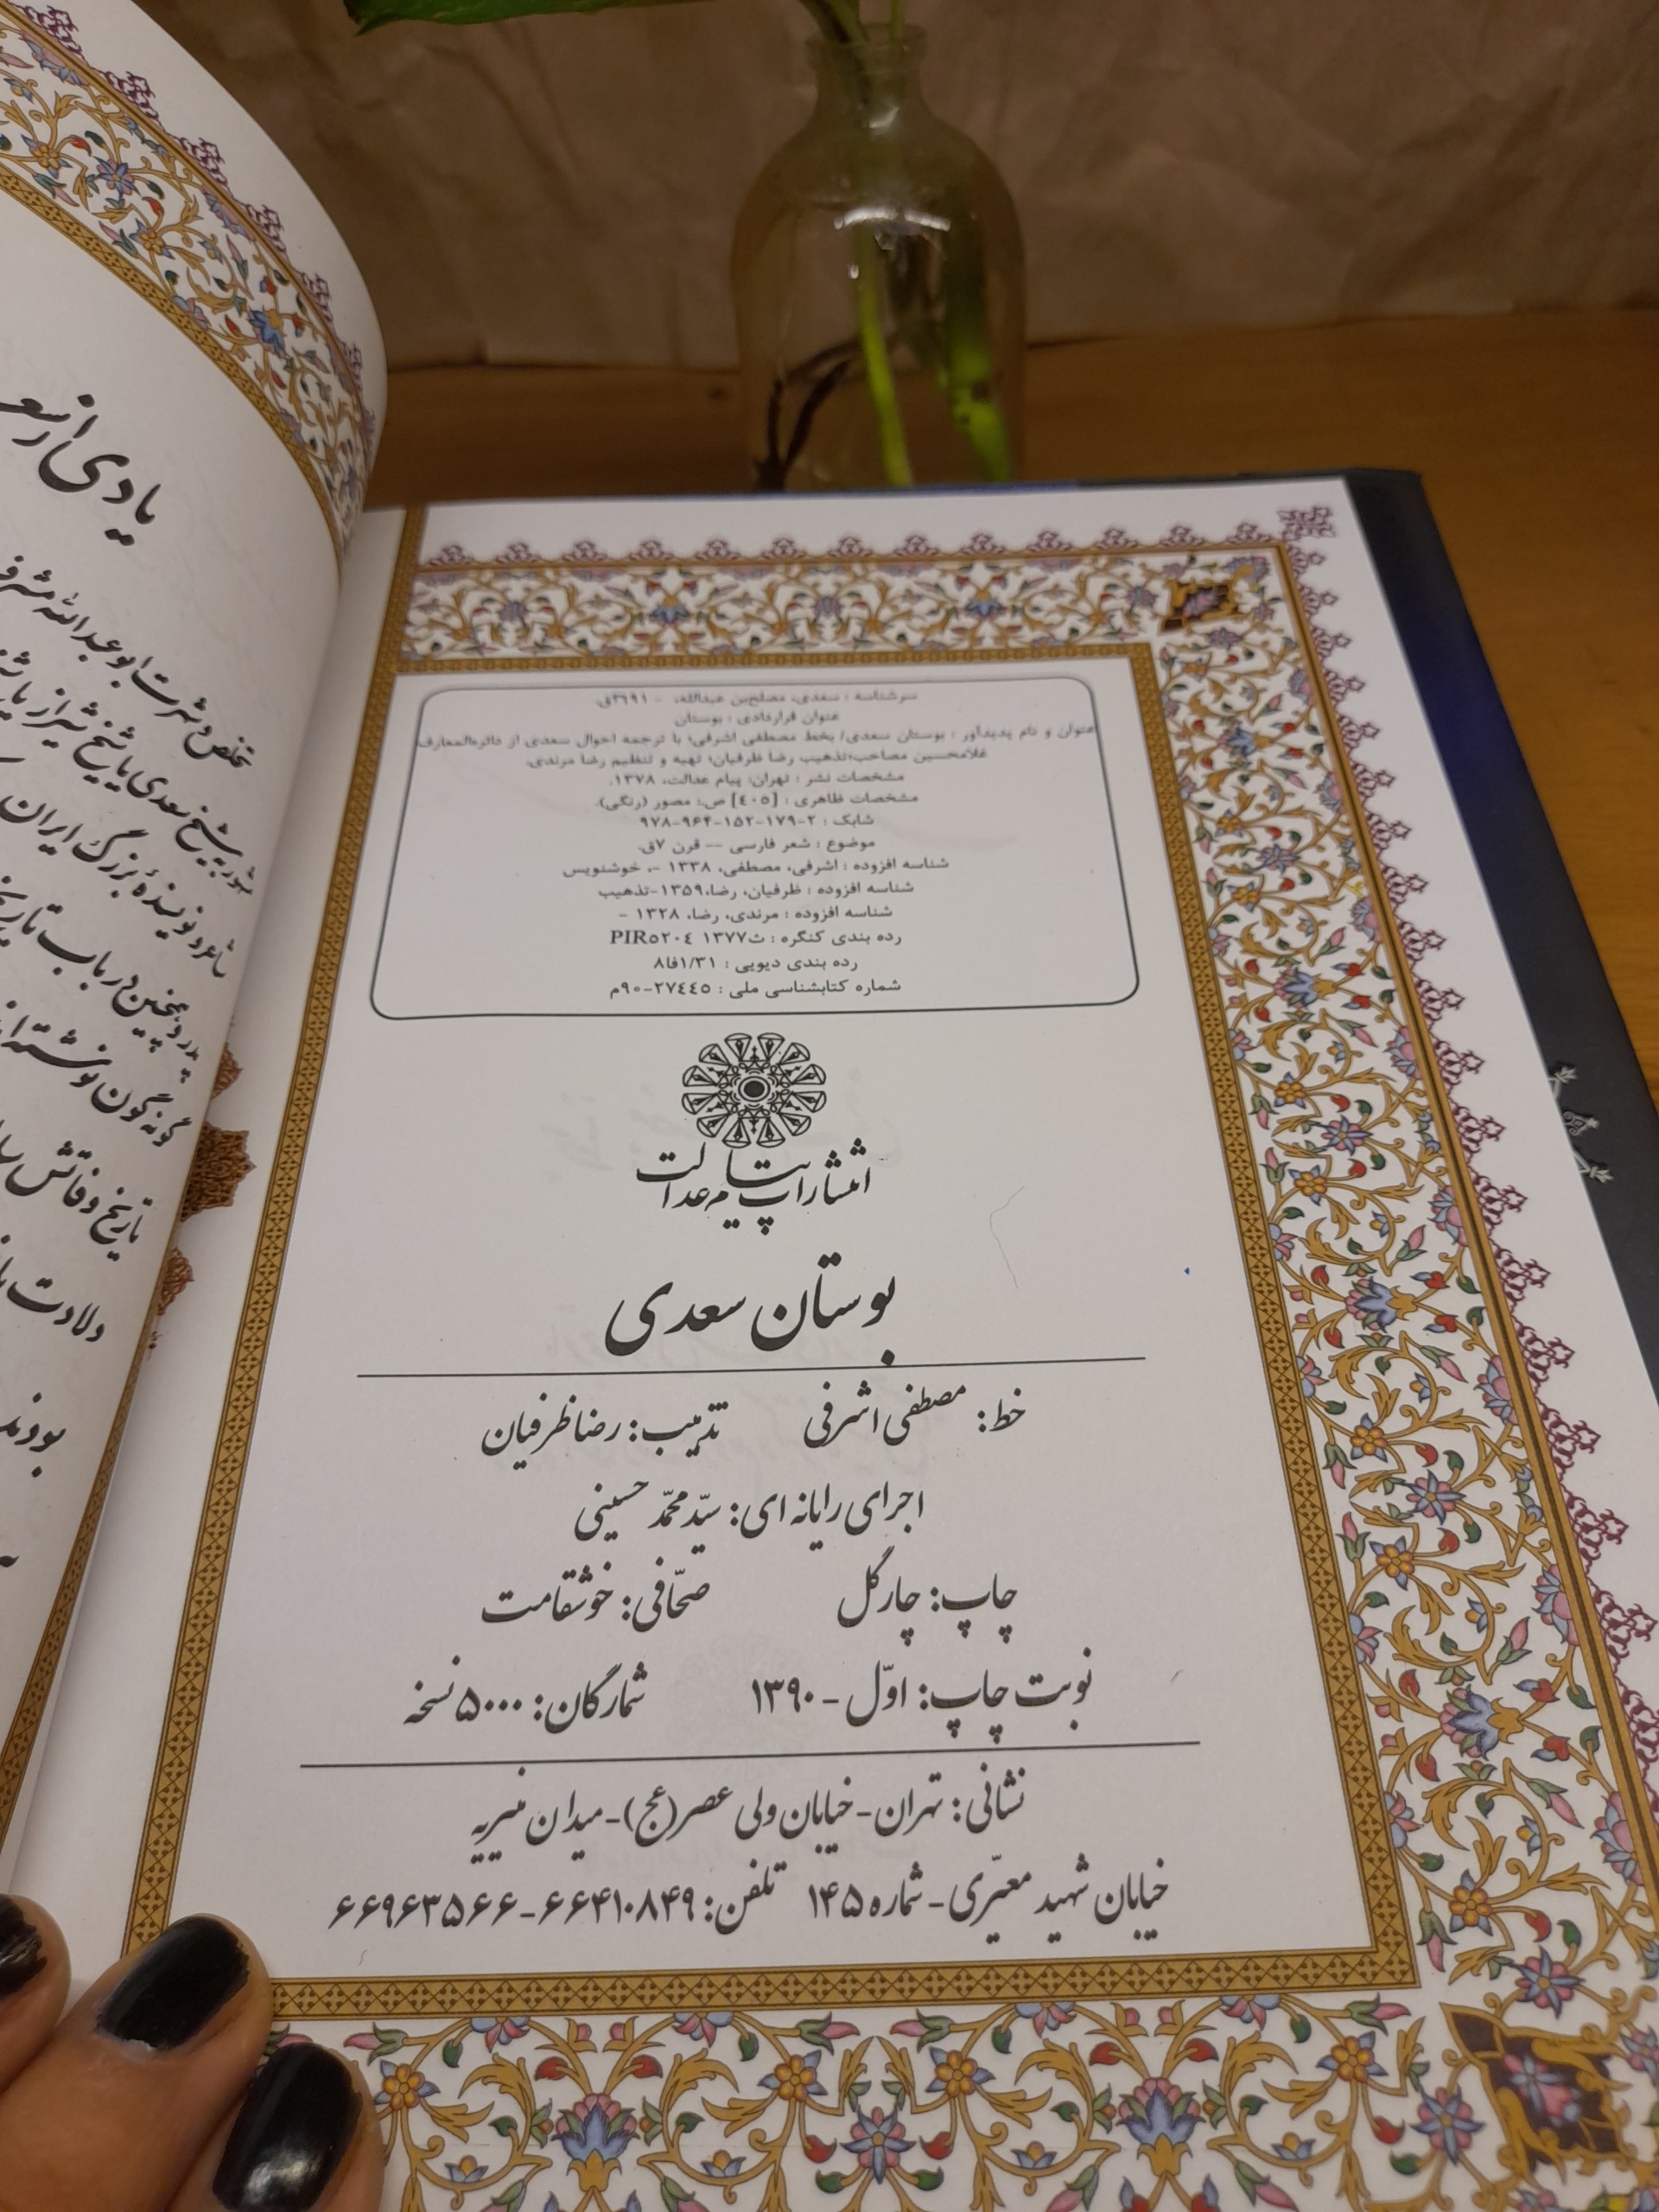 سرشناسه : سعدی، مصلح‌بن عبدالله، - ۶۹۱؟ق.
عنوان قراردادی : بوستان
عنوان و نام پدیدآور : بوستان سعدی/ بخط مصطفی اشرفی؛ با ترجمه احوال سعدی از دائره‌المعارف
غلامحسین مصاحب؛تذهیب رضا ظرفیان؛ تهیه و تنظیم رضا مرندی.
مشخصات نشر : تهران: پیام عدالت، ۱۳۷۸.
مشخصات ظاهری : [۴۰۵] ص: مصور (رنگی).
شابک : ۲-۱۷۹-۱۵۲-۹۶۴-۹۷۸
موضوع : شعر فارسی -- قرن ۷ق.
شناسه افزوده : اشرفی، مصطفی، ۱۳۳۸ -، خوشنویس
شناسه افزوده : ظرفیان، رضا،۱۳۵۹-تذهیب
شناسه افزوده : مرندی، رضا، ۱۳۲۸ -
رده بندی کنگره : ث۱۳۷۷ PIR۵۲۰۴
رده بندی دیویی : ۸فا۱/۳۱
شماره کتابشناسی ملی : ۲۷۴۴۵-۹۰م
انتشارات پیام عدالت
بوستان سعدی
خط: مصطفی اشرفی تذهیب: رضا ظرفیان
اجرای رایانه ای: سیّد محمّد حسینی
چاپ: چارگل صحّافی: خوشقامت
نوبت چاپ: اوّل - ۱۳۹۰ شمارگان: ۵۰۰۰ نسخه
نشانی: تهران - خیابان ولی عصر (عج) - میدان منیریه
خیابان شهید معیّری - شماره ۱۴۵ تلفن: ۶۶۴۱۰۸۴۹ - ۶۶۹۶۳۵۶۶
یادی از
تخلص و شهرت ابو عبدالله
شیخ سعدی یا شیخ شیراز یا
شاعر و نویسندهٔ بزرگ ایران
پدر و همچنین در باب تاریخ
گونه گون نوشته
تاریخ وفاتش
ولادت
بودند